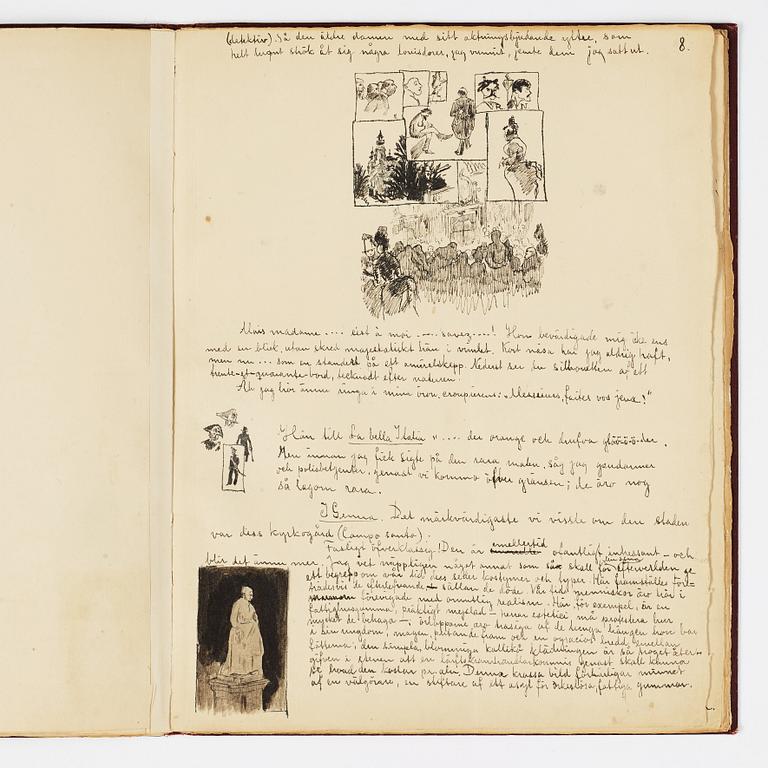 (detektiv). Så den äldre damen med sitt aktningsbjudande yttre, som
helt lugnt strök åt sig några louisdorer, jag vunnit, jemte dem jag satt ut.
8.
Mais madame .... c'est à moi .... savez ....! Hon bevärdigade mig icke ens
med en blick, utan skred majestätiskt hän i vimlet. Kort näsa har jag aldrig haft,
men nu ... som en standert på ett amiralskepp. Nederst ser en silhouetten af ett
trente-et-quarante-bord, tecknadt efter naturen.
Ah jag hör ännu ringa i mina öron, croupierens: "Messieurs, faites vos jeux!"
Hän till La bella Italia „ .... der orange och drufva glöööö-der.
Men innan jag fick sigte på den rara maten, såg jag gendarmer
och polisbetjenter, genast vi kommo öfver gränsen; de äro nog
så lagom rara.
I Genua. Det märkvärdigaste vi visste om den staden
var dess kyrkogård (Campo santo).
Farligt öfverklassig! Den är emellertid ofantligt intressant – och
blir det ännu mer. Jag vet näppeligen något annat som så skall för efterverlden ge
ett begrepp om vår tid, dess seder kostymer och typer. Här framställes före-
trädesvis de efterlefvande – sällan de döda. Vår tids menniskor äro här i
marmorn förevigade med omutlig realism. Här, för exempel, är en
fattighusgumma, präktigt mejslad –
mycket de behaga –;
i sin ungdom, magen, putande fram och en graciös bredd emellan
fötterna; den simpla, blommiga kalliko klädningen är så troget åter-
gifven i stenen att en
se hvad den kostar pr. aln. Denna krassa bild förherrligar minnet
af en välgörare, en stiftare af ett asyl för orkeslösa, fattiga gummor.